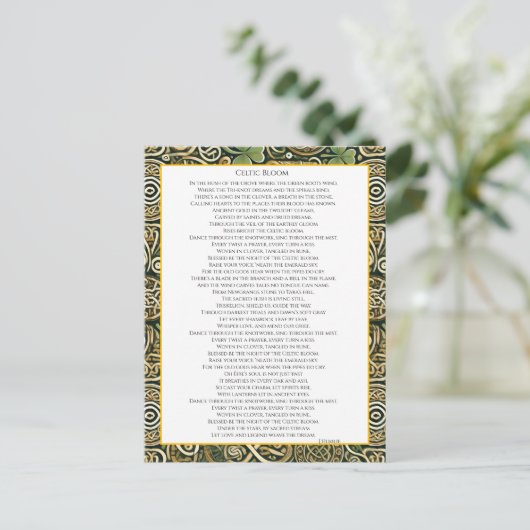 Celtic Bloom
In the hush of the grove where the green roots wind,
Where the tri-knot dreams and the spirals bind,
There's a song in the clover, a breath in the stone,
Calling hearts to the places their blood has known.
Ancient gold in the twilight gleams,
Carved by saints and druid dreams.
Through the veil of the earthly gloom
Rises bright the Celtic Bloom.
Dance through the knotwork, sing through the mist,
Every twist a prayer, every turn a kiss.
Woven in clover, tangled in rune,
Blessed be the night of the Celtic Bloom.
Raise your voice 'neath the emerald sky,
For the old gods hear when the pipes do cry.
There's a blade in the branch and a bell in the flame,
And the wind carves tales no tongue can name.
From Newgrange stone to Tara's hill,
The sacred hush is living still.
Triskelion, shield us, guide the way,
Through darkest trials and dawn's soft gray.
Let every shamrock, leaf by leaf,
Whisper love, and mend our grief.
Dance through the knotwork, sing through the mist,
Every twist a prayer, every turn a kiss.
Woven in clover, tangled in rune,
Blessed be the night of the Celtic Bloom.
Raise your voice 'neath the emerald sky,
For the old gods hear when the pipes do cry.
Oh Éire's soul is not just past
It breathes in every oak and ash,
So cast your charm, let spirits rise,
With lanterns lit in ancient eyes.
Dance through the knotwork, sing through the mist,
Every twist a prayer, every turn a kiss.
Woven in clover, tangled in rune,
Blessed be the night of the Celtic Bloom.
Under the stars, by sacred stream,
Let love and legend weave the dream.